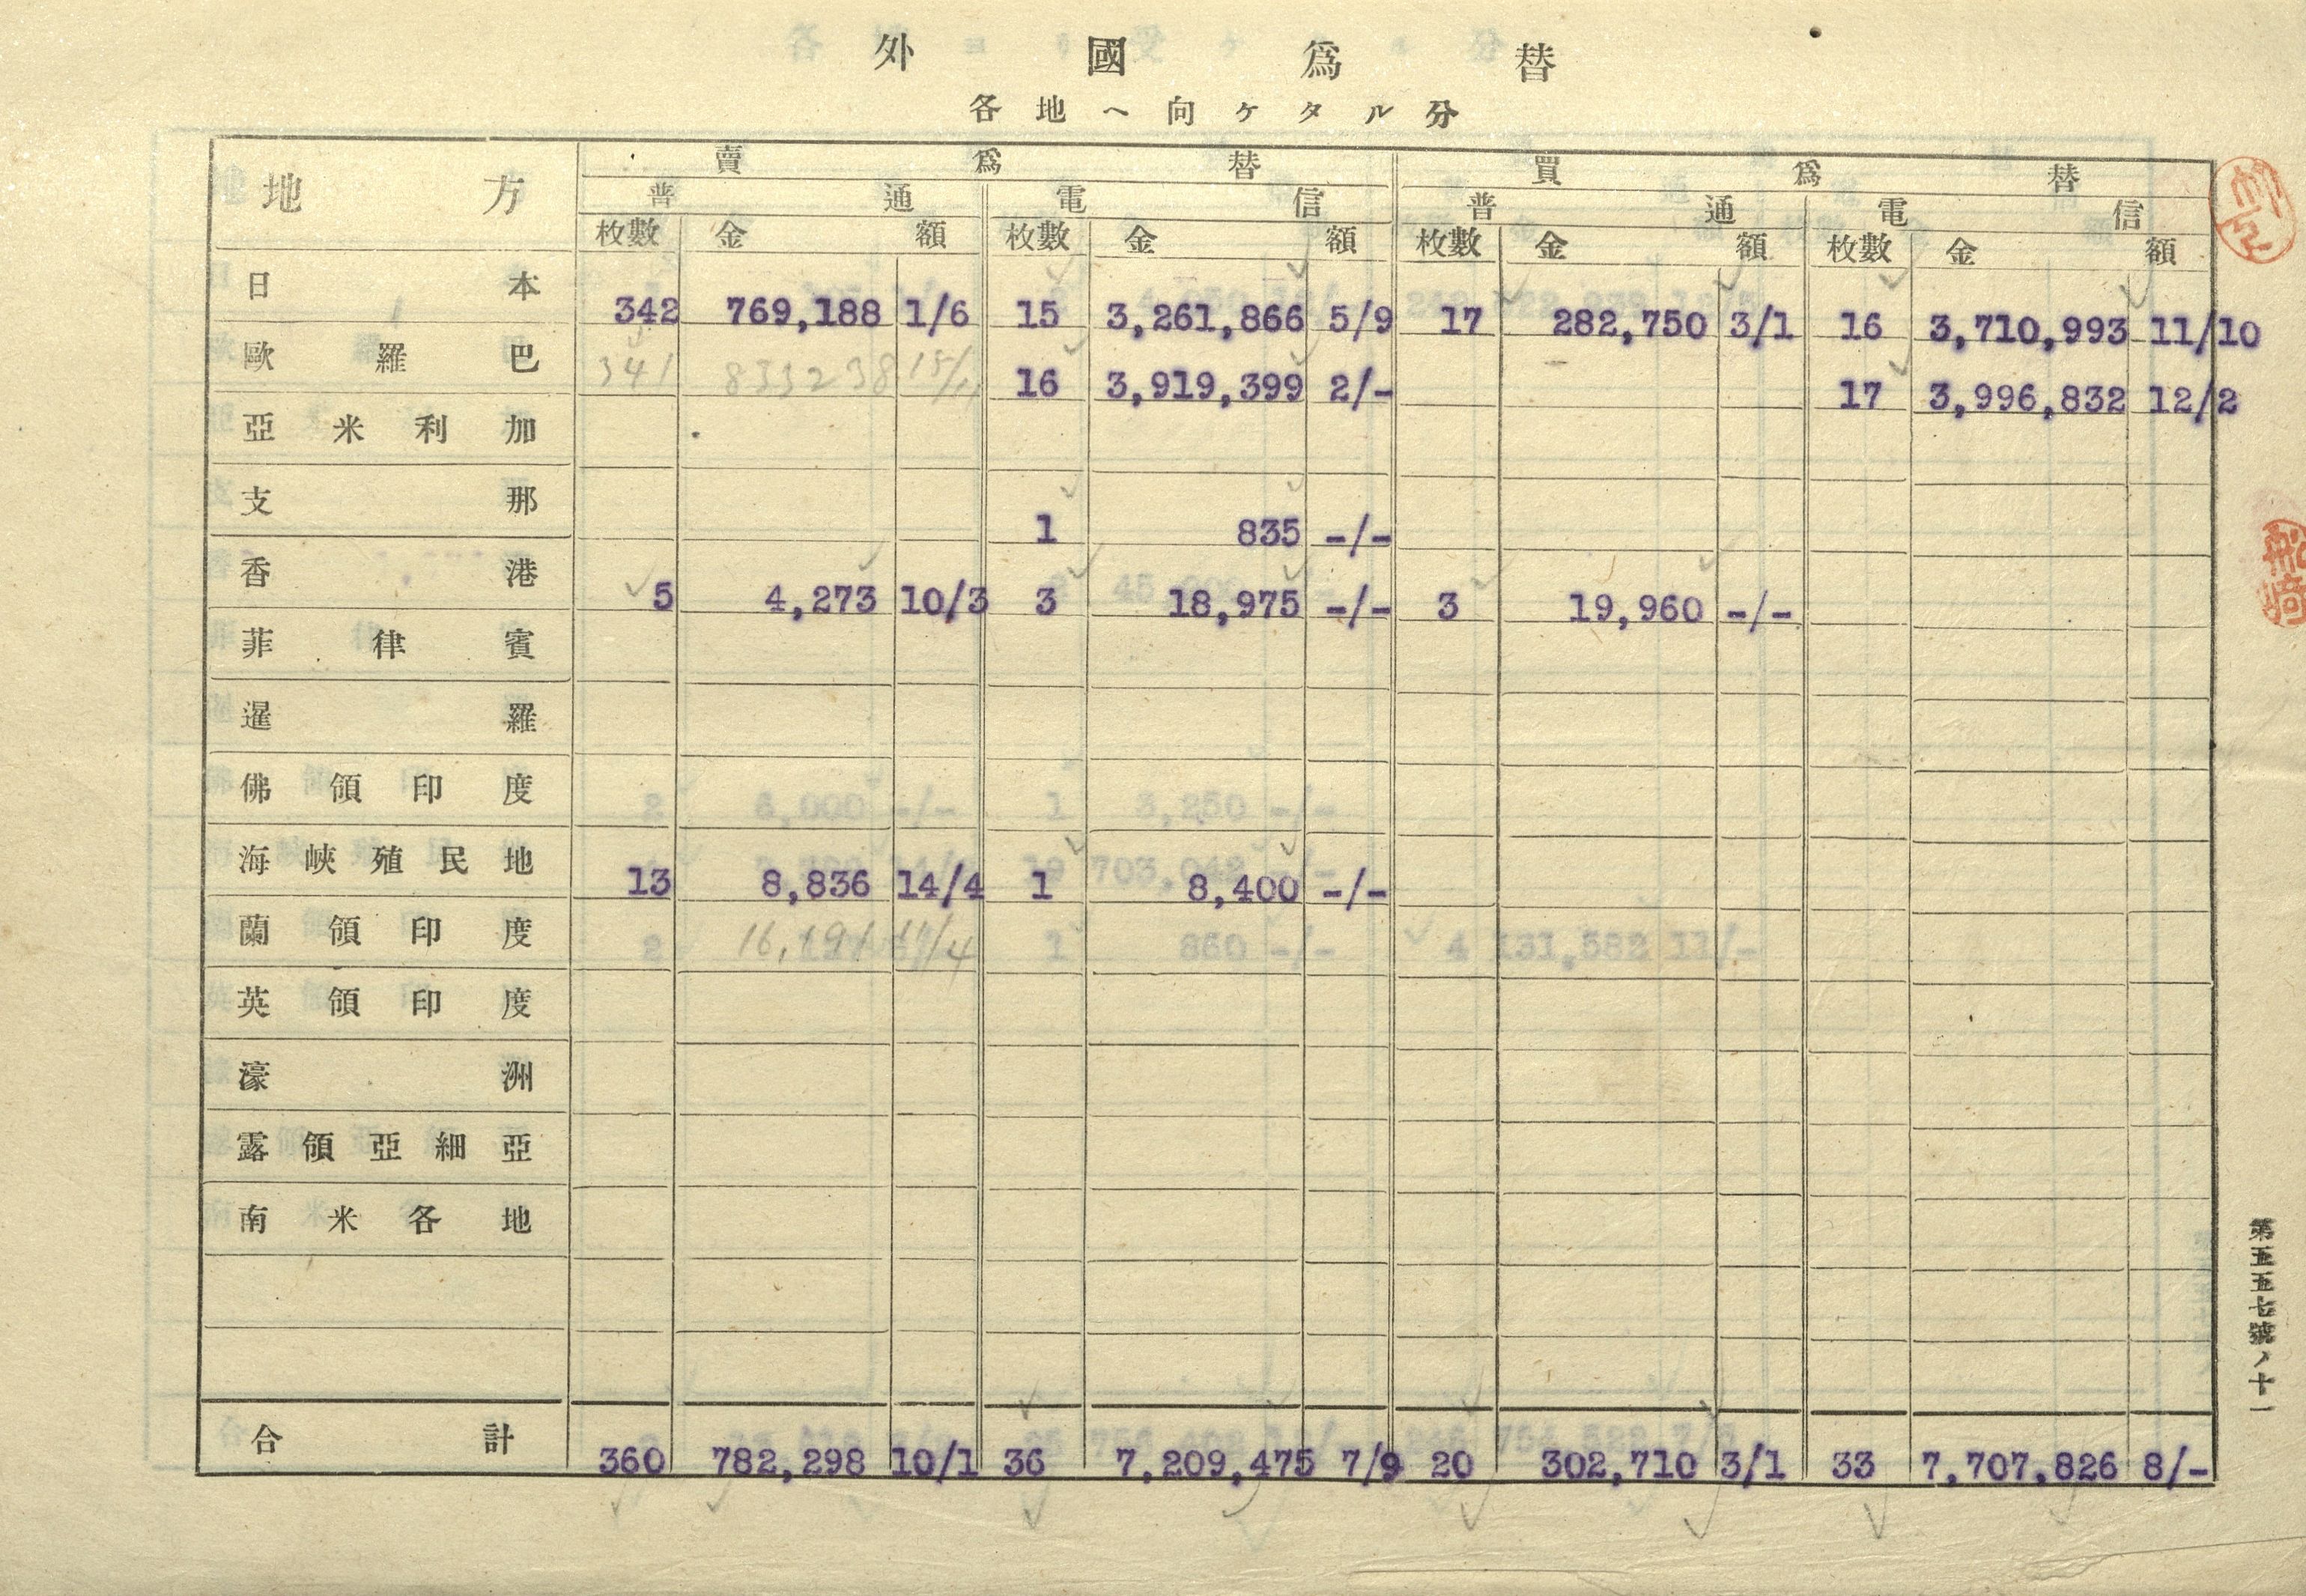 外國為替
各地ヘ向ケタル分
地方 賣為替 買為替
普通 電信 普通 電信
枚數 金額 枚數 金額 枚數 金額 枚數 金額
日本 342 769,188 1/6 15 3,261,866 5/9 17 282,750 3/1 16 3,710,993 11/10
歐羅巴 341 833238 16 3,919,399 2/- 17 3,996,832 12/2
亞米利加
支那 1 835 -/-
香港 5 4,273 10/3 3 18,975 -/- 3 19,960 -/-
菲律賓
暹羅
佛領印度
海峽殖民地 13 8,836 14/4 1 8,400 -/-
蘭領印度 16,191 11/4
英領印度
濠洲
露領亞細亞
南米各地
合計 360 782,298 10/1 36 7,209,475 7/9 20 302,710 3/1 33 7,707,826 8/-
第五五七號ノ十一